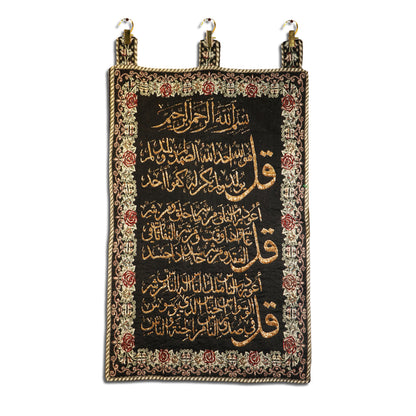 بسم الله الرحمن الرحيم
قل هو الله احد الله الصمد لم يلد ولم
يولد ولم يكن له كفوا احد
قل أعوذ برب الفلق من شر ما خلق ومن شر
غاسق اذا وقب ومن شر النفاثات في
العقد ومن شر حاسد اذا حسد
قل أعوذ برب الناس ملك الناس اله الناس من شر
الوسواس الخناس الذي يوسوس
في صدور الناس من الجنة والناس